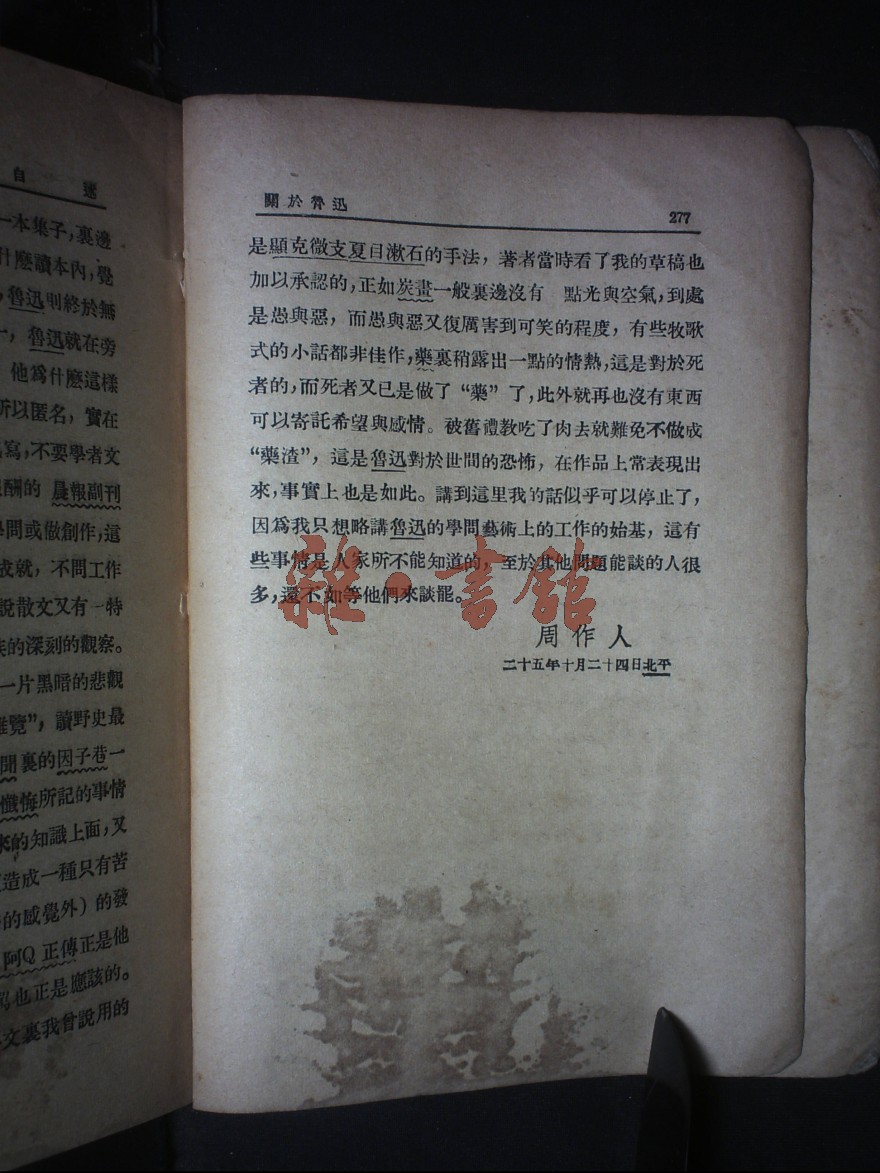 自 述
一本集子，裏邊
什麽讀本內，覺
，魯迅則終於無
一，魯迅就在旁
他爲什麽這樣
所以匿名，實在
寫，不要學者文
酬的 晨報副刊
學問或做創作，這
成就，不問工作
說散文又有一特
族的深刻的觀察。
一片黑暗的悲觀
雜覽”，讀野史最
聞裏的因子巷一
懺悔所記的事情
來的知識上面，又
造成一種只有苦
的感覺外）的發
阿Q 正傳正是他
罵也正是應該的。
文裏我曾說用的
關於魯迅 277
是顯克微支夏目漱石的手法，著者當時看了我的草稿也
加以承認的，正如炭畫一般裏邊沒有 點光與空氣，到處
是愚與惡，而愚與惡又復厲害到可笑的程度，有些牧歌
式的小話都非佳作，藥裏稍露出一點的情熱，這是對於死
者的，而死者又已是做了“藥”了，此外就再也沒有東西
可以寄託希望與感情。被舊禮教吃了肉去就難免不做成
“藥渣”，這是魯迅對於世間的恐怖，在作品上常表現出
來，事實上也是如此。講到這里我的話似乎可以停止了，
因爲我只想略講魯迅的學問藝術上的工作的始基，這有
些事情是人家所不能知道的，至於其他問題能談的人很
多，還不如等他們來談罷。
雜·書館
周作人
二十五年十月二十四日北平